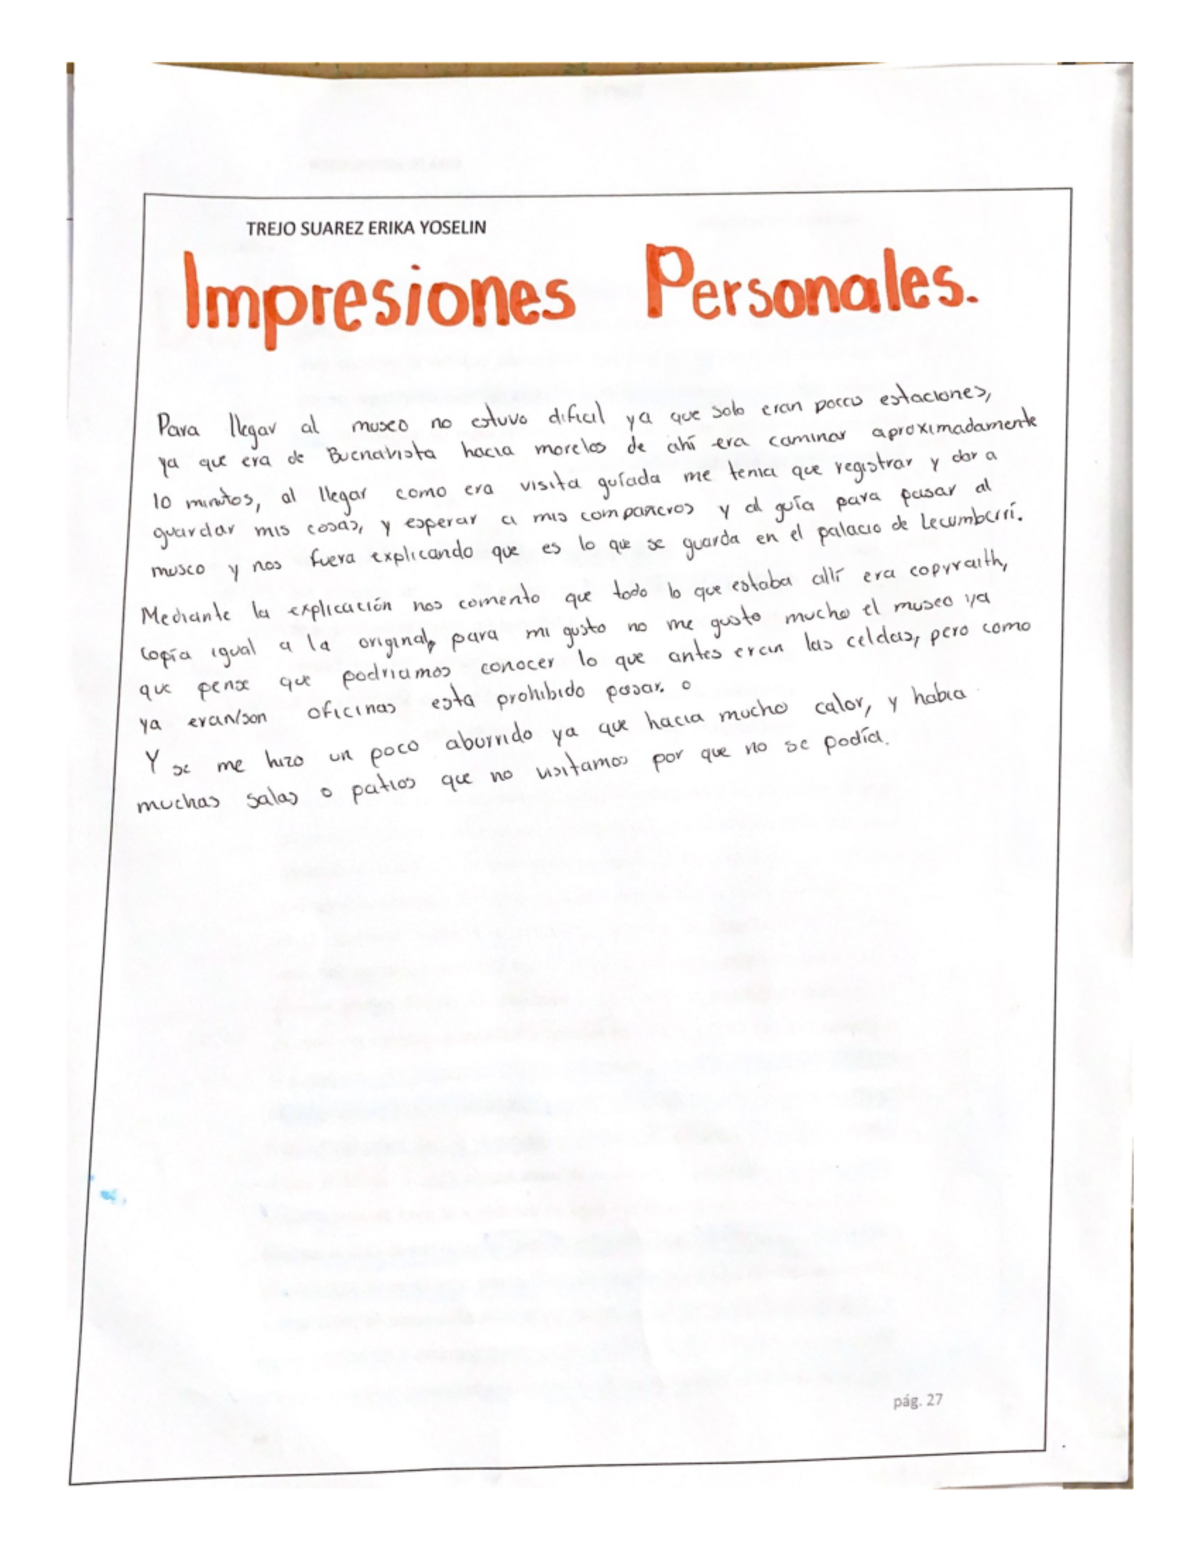 TREJO SUAREZ ERIKA YOSELIN
Impresiones Personales.
Para llegar al museo no estuvo dificil ya que solo eran pocas estaciones,
ya que era de Buenavista hacia morelos de ahí era caminar aproximadamente
10 minutos, al llegar como era visita guíada me tenia que registrar y dar a
guardar mis cosas, y esperar a mis compañeros y al guía para pasar al
museo y nos fuera explicando que es lo que se guarda en el palacio de Lecumberrí.
Mediante la explicación nos comento que todo lo que estaba allí era copyraith,
copía igual a la original, para mi gusto no me gusto mucho el museo ya
que pense que podriamos conocer lo que antes eran las celdas, pero como
ya eran/son oficinas esta prohibido pasar. o
Y se me hizo un poco aburrido ya que hacia mucho calor, y habia
muchas salas o patios que no visitamos por que no se podía.
pág. 27